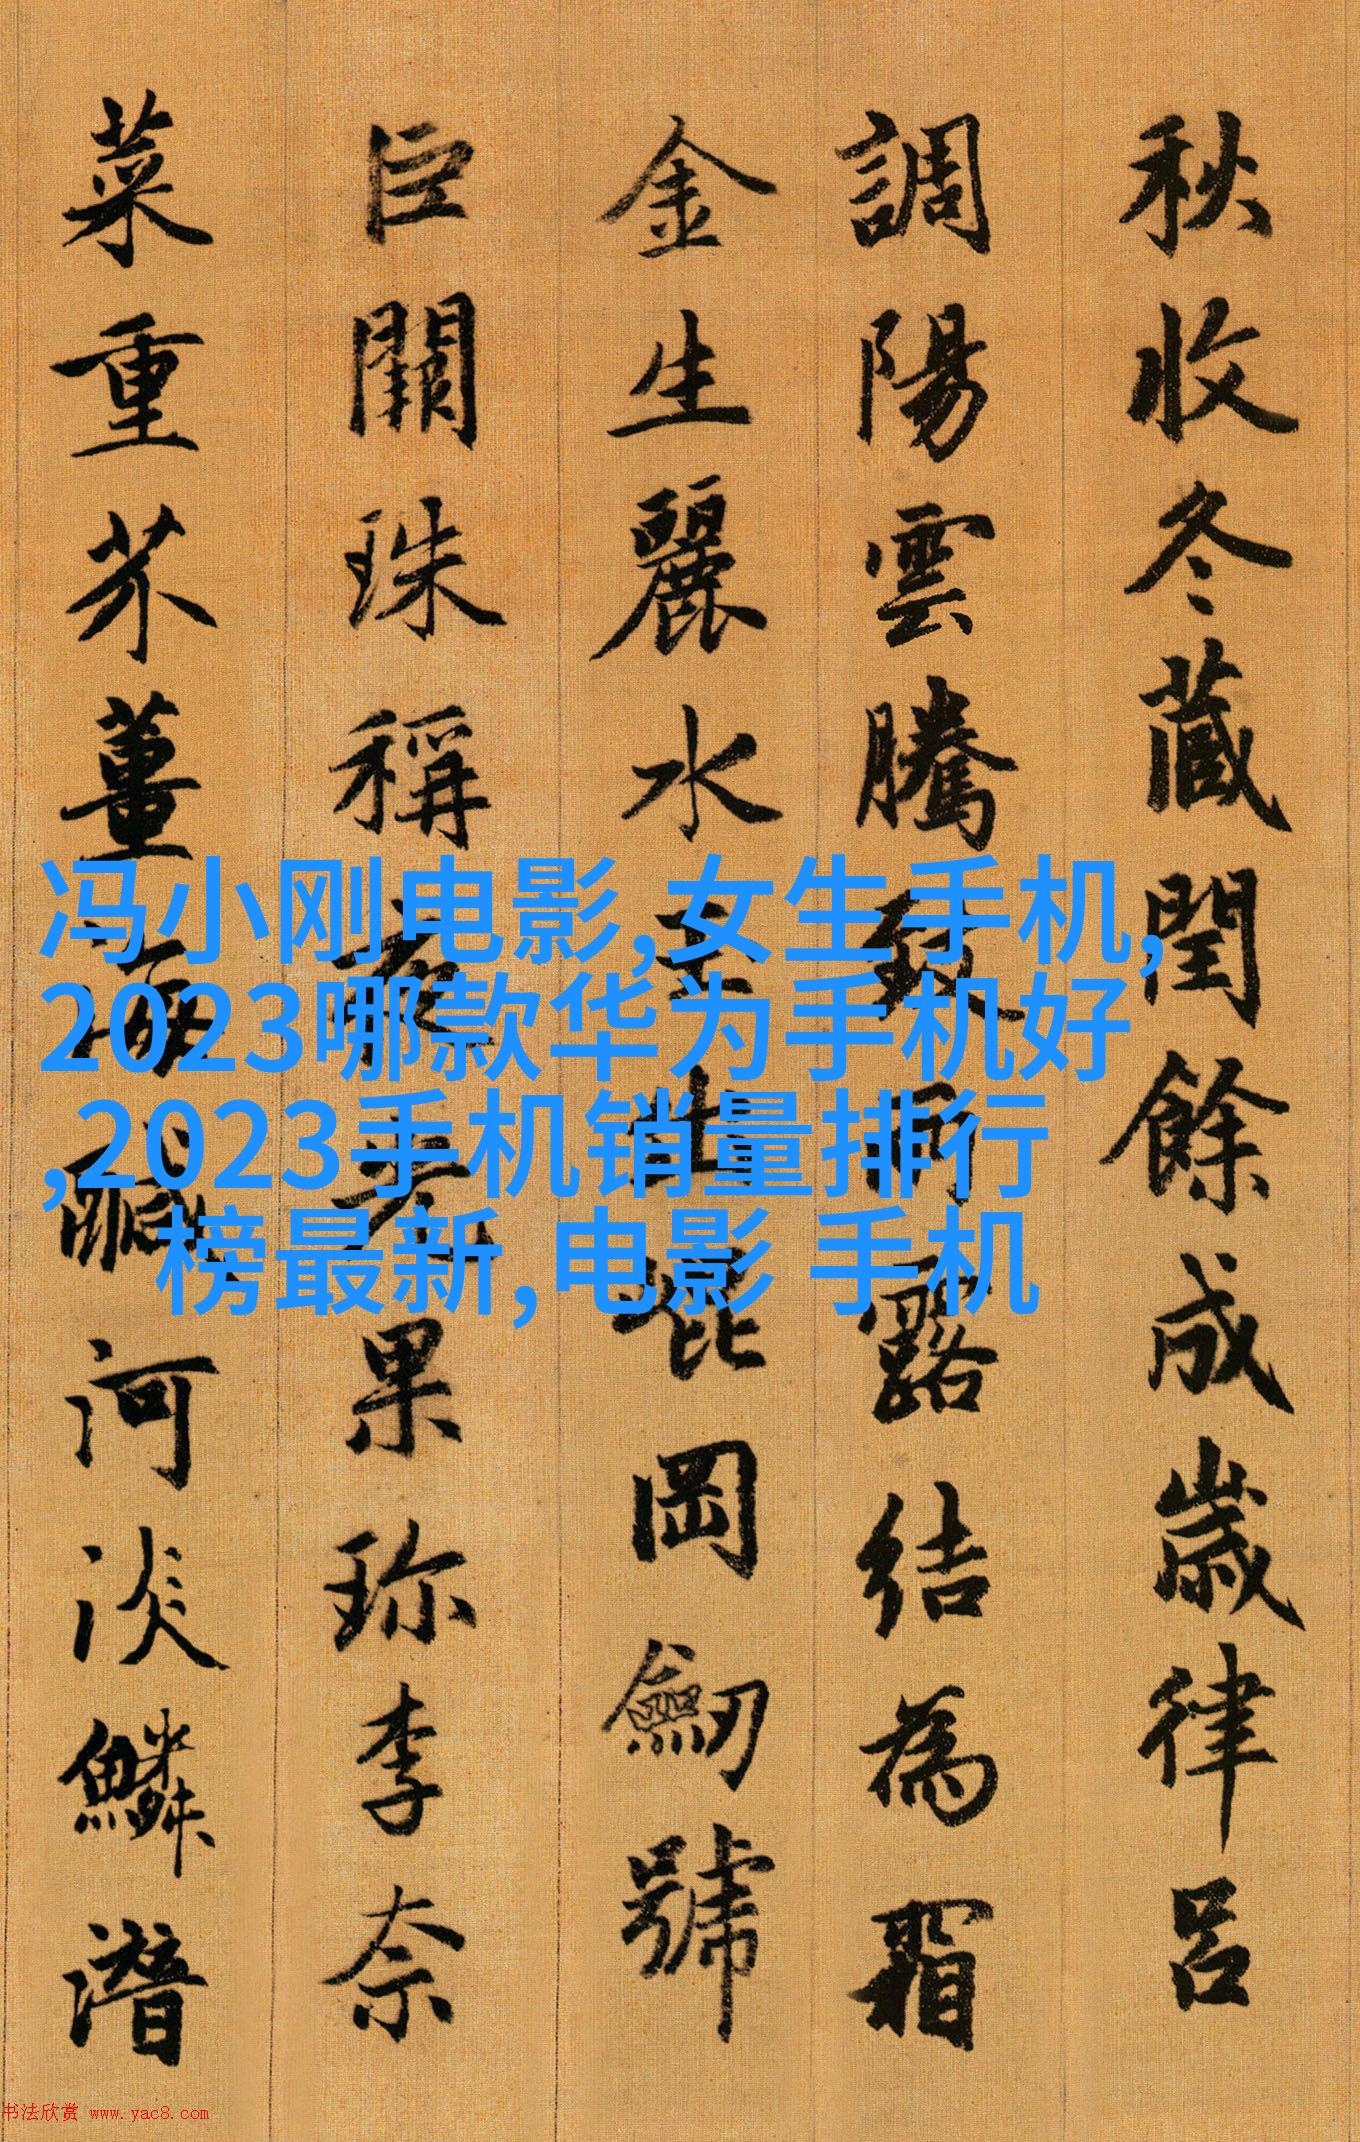 秋收冬藏閏餘成歲律呂
調陽雲騰致雨露結為霜
金生麗水玉出崐岡劒號
巨闕珠稱夜光果珎李柰
菜重芥薑海鹹河淡鱗潛
冯小刚电影,女生手机,
2023哪款华为手机好
,2023手机销量排行
榜最新,电影 手机
书法欣赏 www.yac8.com